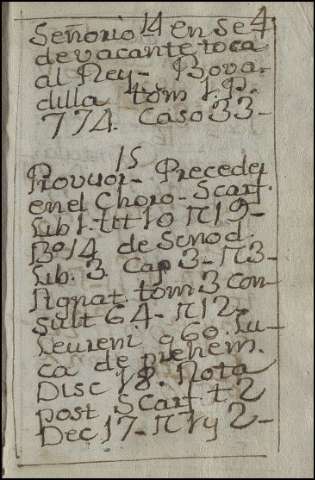 14
Señorio en Sede
devacante, toca
al Rey- Bova-
dilla tom 1. P.
774. Caso 33-
15
Provisor- Preceder
en el Choro- Scarf.
Lib 1. tit 10 n 19-
Bº 14 de Sinod.
Lib. 3. Cap 3- n 3-
Pignat. tom 3 con-
sult 64- n 12-
Leureni q 60. Lu-
ca de prehem.
Disc 18. Nota
post Scarf t 2
Dec 17- n 1 y 2-